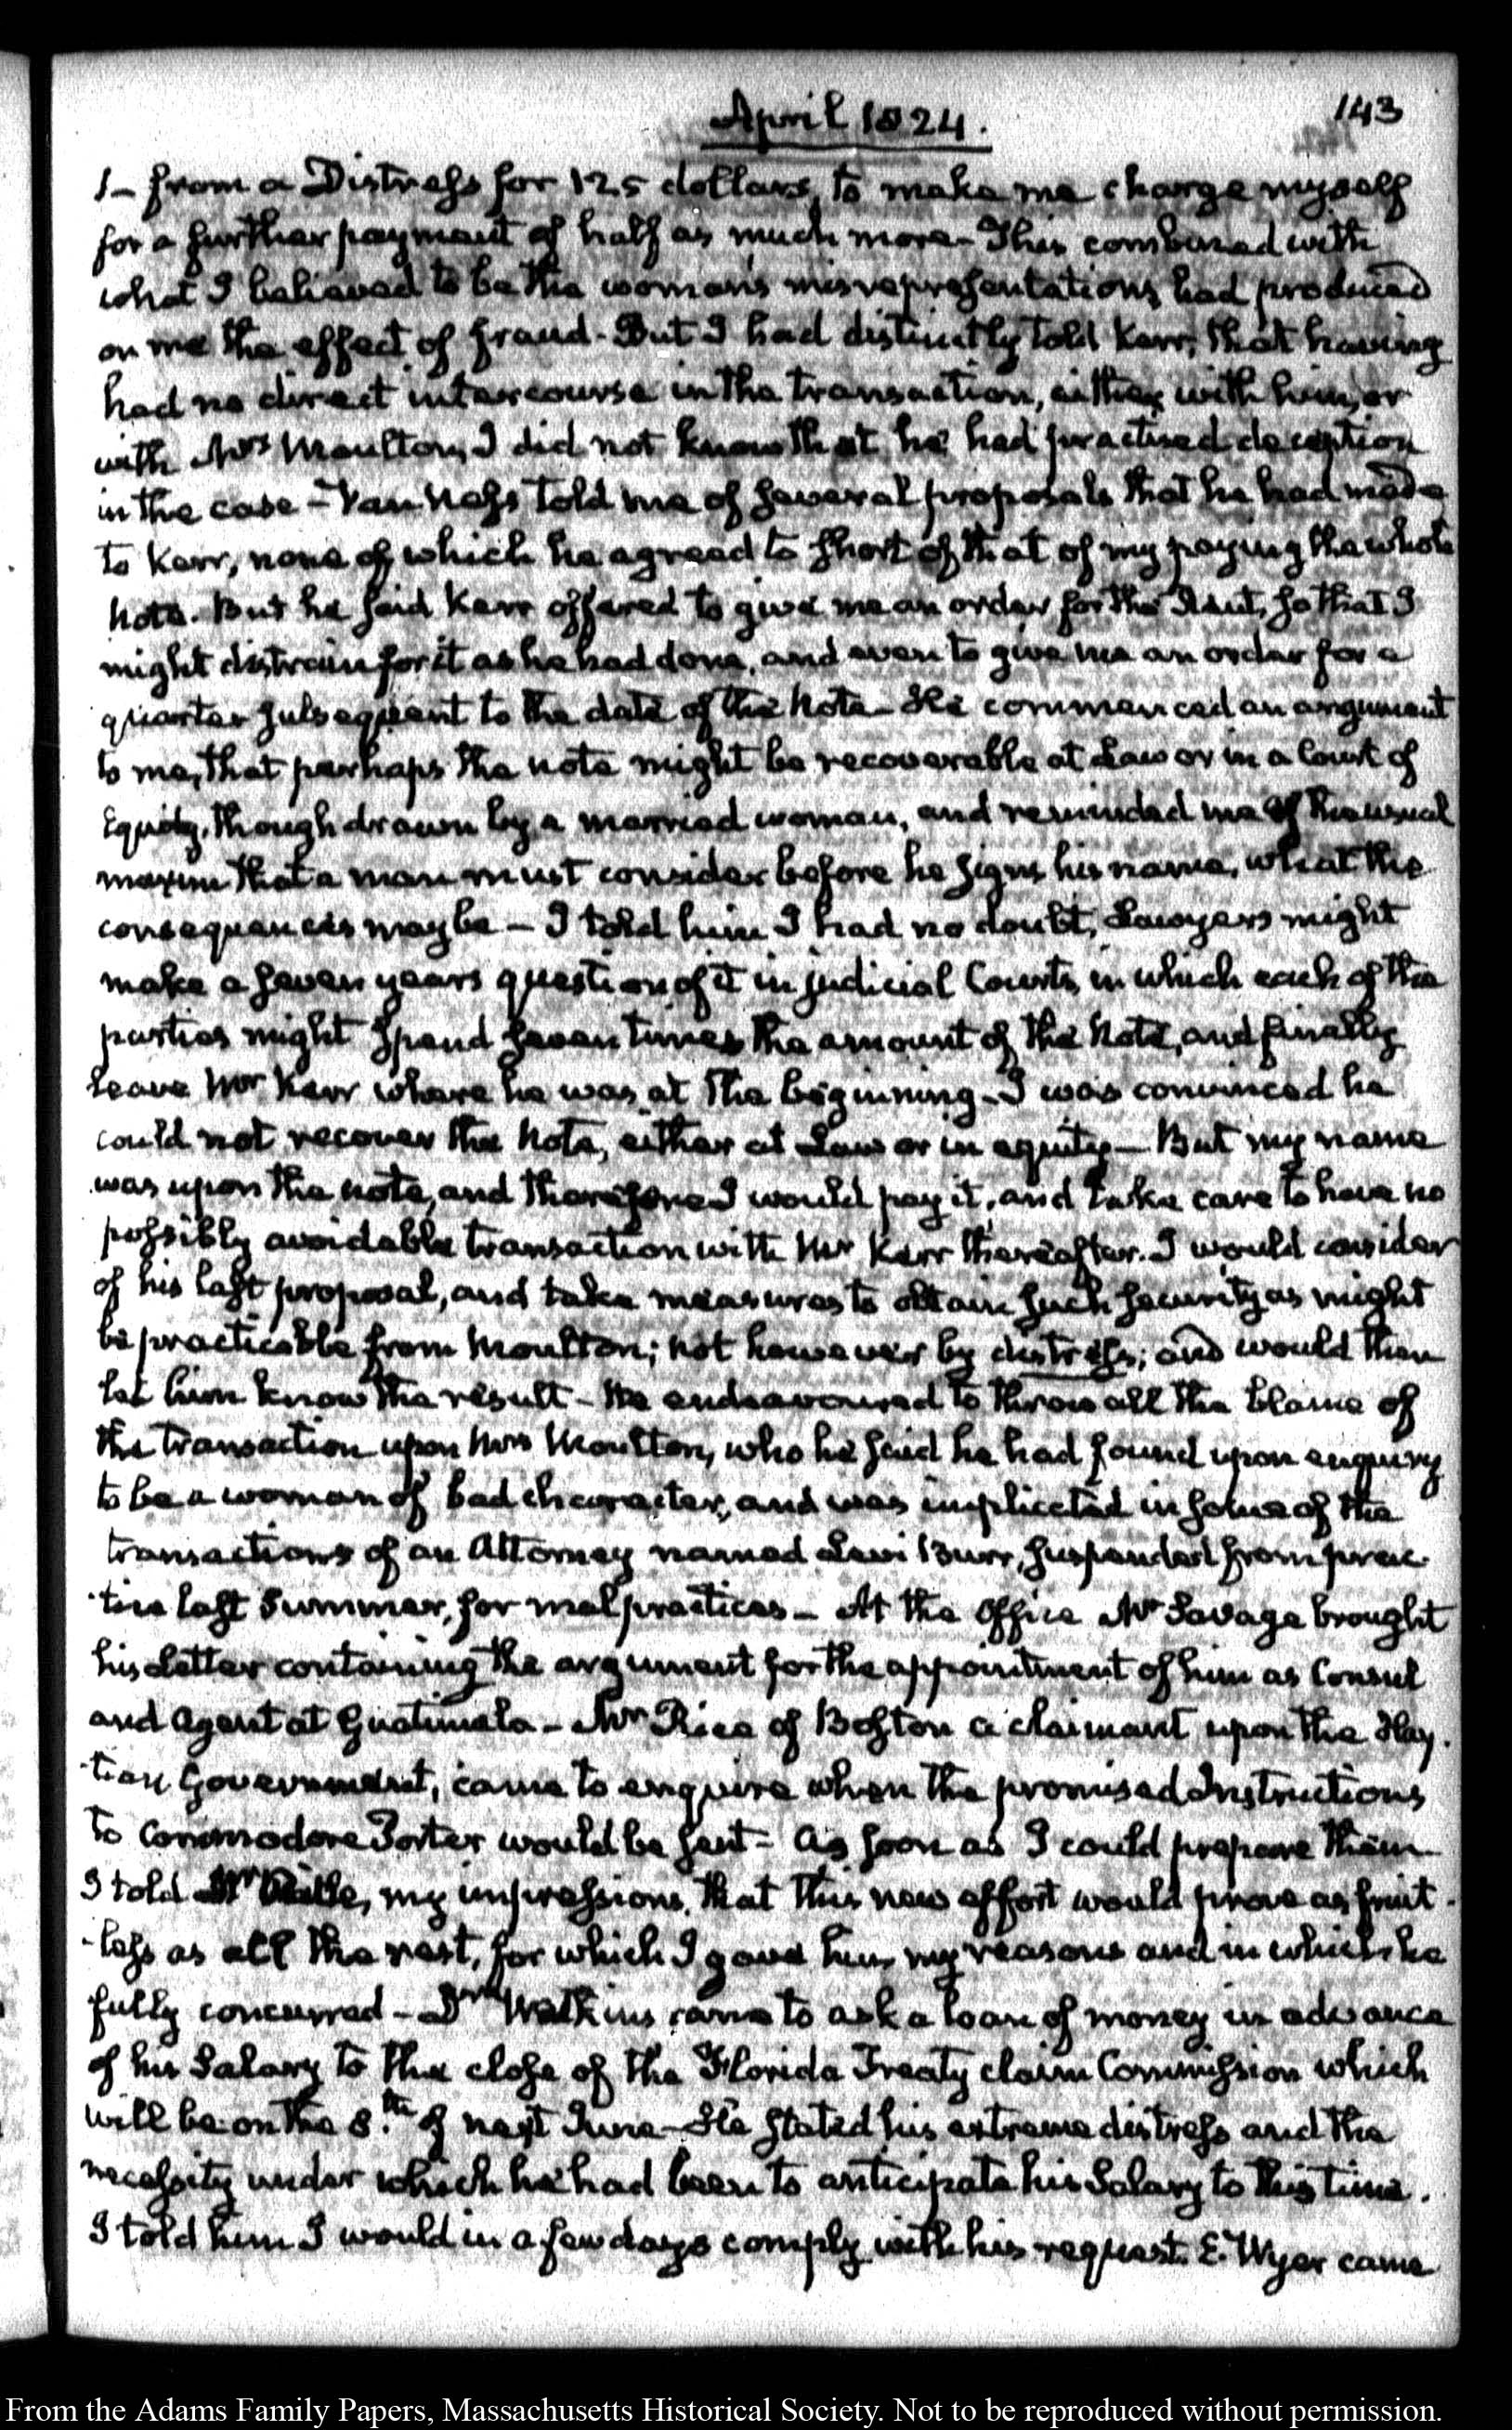 April 1824.
143
1 — from a Distress for 125 dollars, to make me charge myself
for a further payment of half as much more — This combined with
what I believed to be the woman's misrepresentations, had produced
on me the effect of fraud. But I had distinctly told Kerr, that having
had no direct intercourse in the transaction, either with him, or
with Mrs Moulton, I did not know that he had practised deception
in the case — Van Ness told me of several proposals that he had made
to Kerr, none of which he agreed to short of that of my paying the whole
Note. But he said Kerr offered to give me an order for the Rent, so that I
might distrain for it as he had done, and even to give me an order for a
quarter subsequent to the date of the Note — He commenced an argument
to me, that perhaps the note might be recoverable at Law or in a Court of
Equity, though drawn by a married woman, and reminded me of the usual
maxim that a man must consider before he signs his name, what the
consequences may be — I told him I had no doubt, Lawyers might
make a seven years question of it in judicial Courts, in which each of the
parties might spend seven times the amount of the Note, and finally
leave Mr Kerr where he was at the beginning — I was convinced he
could not recover the Note, either at Law or in equity — But my name
was upon the note, and therefore I would pay it, and take care to have no
possibly avoidable transaction with Mr Kerr thereafter. I would consider
of his last proposal, and take measures to obtain such security as might
be practicable from Moulton; not however by distress; and would then
let him know the result — He endeavoured to throw all the blame of
the transaction upon Mrs Moulton, who he said he had found upon enquiry
to be a woman of bad character, and was implicated in some of the
transactions of an Attorney named Levi Burr, suspended from prac-
-tice last Summer, for malpractices — At the Office Mr Savage brought
his Letter containing the argument for the appointment of him as Consul
and Agent at Guatimala — Mr Rice of Boston a claimant upon the Hay-
-tian Government, came to enquire when the promised Instructions
to Commodore Porter would be sent — As soon as I could prepare them —
I told Mr my impressions, that this new effort would prove as fruit-
-less as all the rest, for which I gave him my reasons and in which he
fully concurred — Dr Watkins came to ask a loan of money in advance
of his Salary to the close of the Florida Treaty claim Commission which
will be on the 8.th of next June — He stated his extreme distress and the
necessity under which he had been to anticipate his Salary to this time.
I told him I would in a few days comply with his request. E. Wyer came
From the Adams Family Papers, Massachusetts Historical Society. Not to be reproduced without permission.